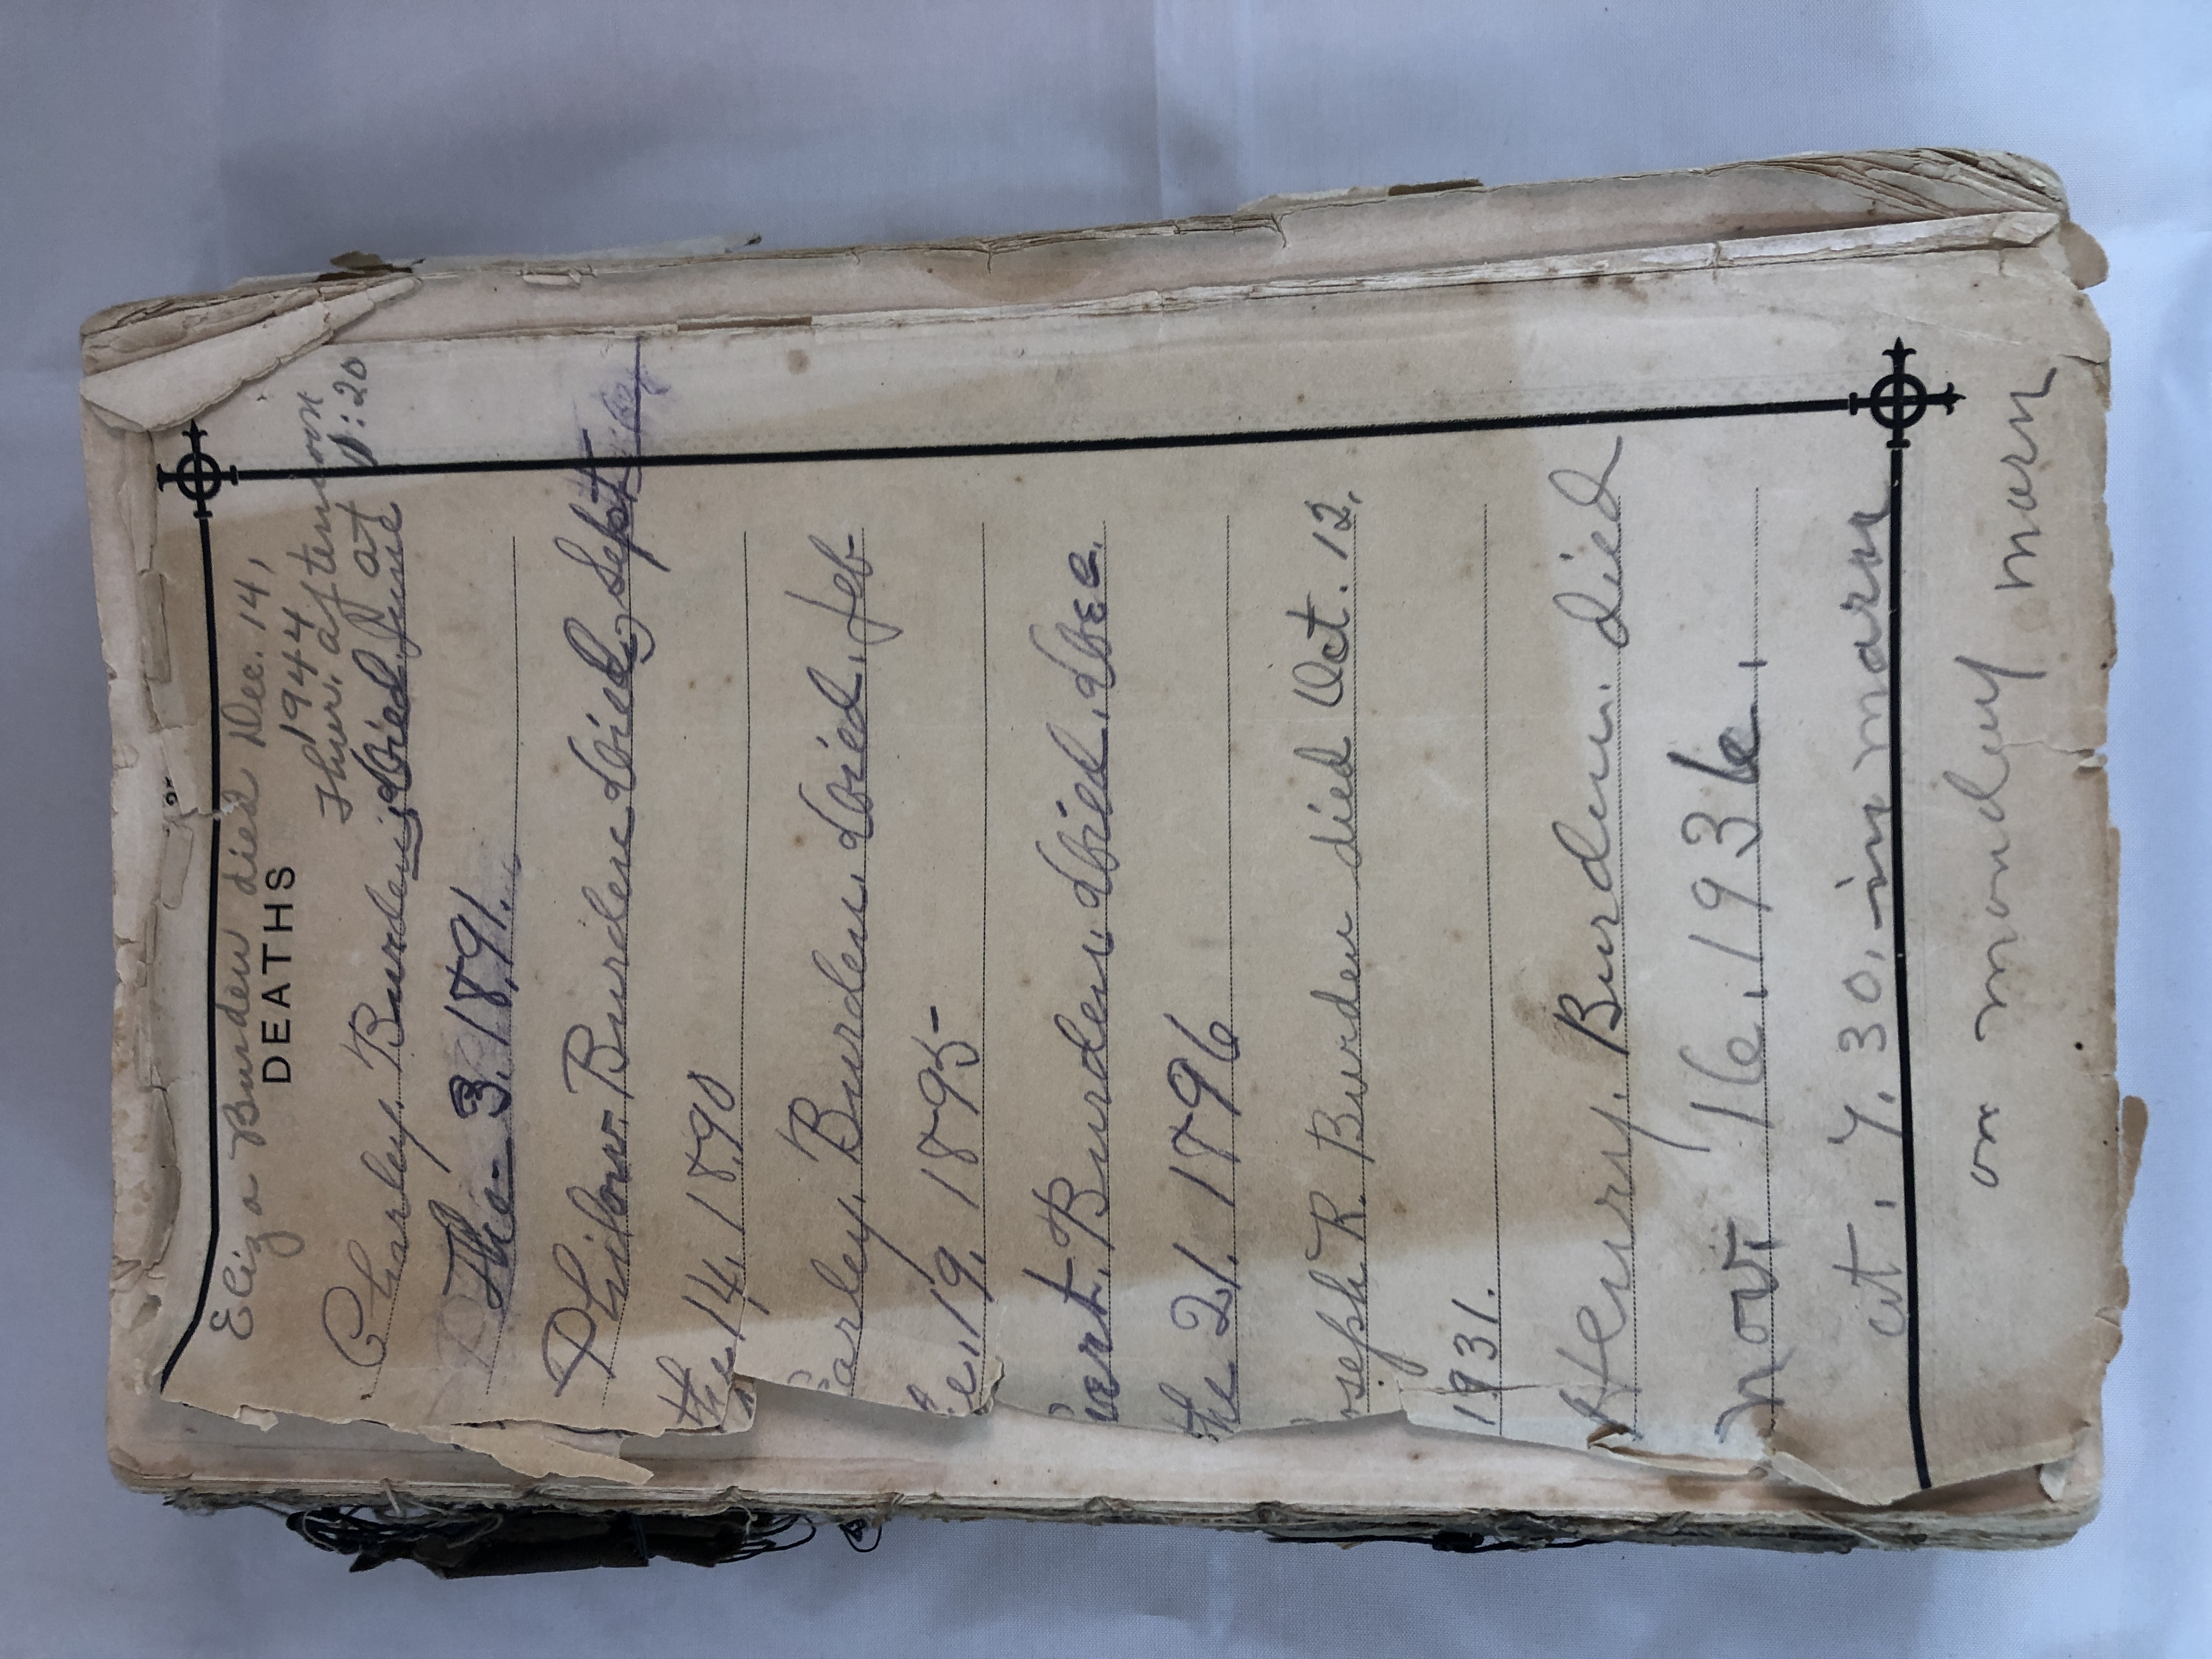 Eliza Burden died Dec. 14,
1944
DEATHS
Thur. afternoon
at 1:20
Charley. Burden. Died. June
The- 3. 1891.
Burden Died, Sept
the 14, 1890
arley, Burden, Died, feb-
e, 19, 1895-
ert. Burden Died, Dec.
the 21, 1896
oseph R. Burden died Oct. 12,
1931.
Henry. Burden. died
Nov. 16, 1936.
at. 7.30, in marn
on monday morn